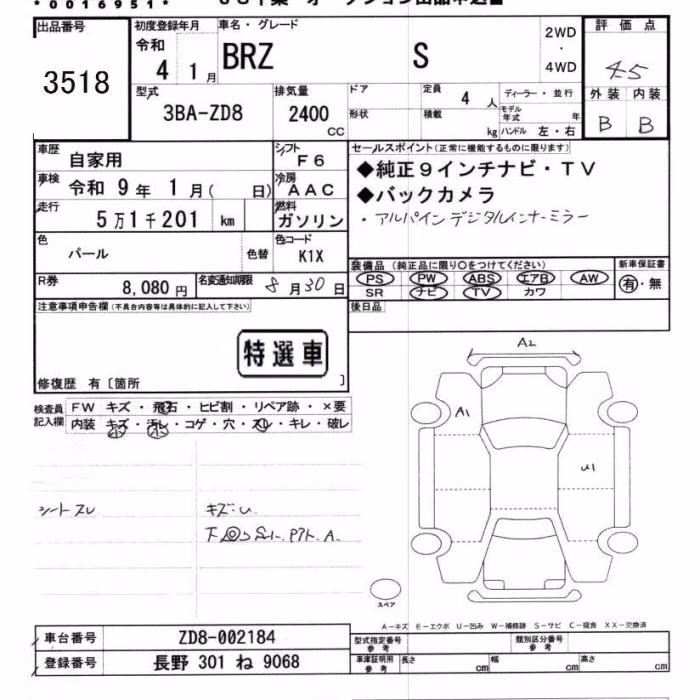 *0016951*
出品番号
3518
初度登録年月
令和
4 1月
車名・グレード
BRZ S
2WD
・
4WD
評価点
4.5
外装 内装
B B
型式
3BA-ZD8
排気量
2400
cc
ドア
形状
定員
4 人
積載
kg
ディーラー・並行
モデル年式 年
ハンドル 左・右
車歴
自家用
シフト
F6
車検
令和 9年 1月( 日)
冷房
AAC
走行
5万1千201 km
燃料
ガソリン
色
パール
色替
色コード
K1X
R券
8,080円
名変通知期限
8月30日
セールスポイント(正常に機能するものに限ります)
◆純正9インチナビ・TV
◆バックカメラ
・アルパインデジタルインナーミラー
装備品(純正品に限り〇をつけてください)
PS PW ABS エアB AW
SR ナビ TV カワ
新車保証書
有・無
後日品
注意事項申告欄(不具合内容等は具体的に記入して下さい)
特選車
修復歴 有〔箇所 〕
検査員記入欄
FW キズ・飛石・ヒビ割・リペア跡・×要
内装 キズ・汚レ・コゲ・穴・スレ・キレ・破レ
シートスレ
キズ・U
A2
A1
U1
スペア
A-キズ E-エクボ U-凹み W-補修跡 S-サビ C-腐食 XX-交換済
車台番号
ZD8-002184
登録番号
長野 301 ね 9068
型式指定番号
参考
類別区分番号
参考
車庫証明用
参考
長さ cm
幅 cm
高さ cm